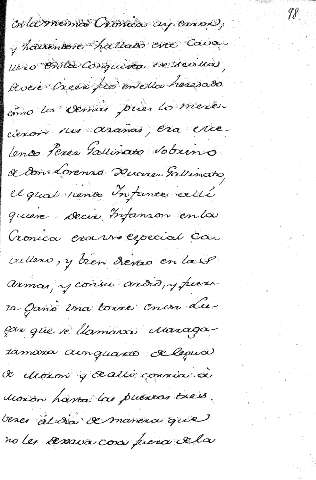 98
en la misma Crónica ay error,
y haviendose hallado este Cava
llero en la Conquista de Sevilla,
deve creer fue en ella heredado
como los demas pues lo mere-
cieron sus asañas, era este
Perez Gallinato sobrino
de don Lorenzo Suarez Gallinato,
el qual siendo Infante alli
quiere decir Infanzon en la
Crónica era un especial Ca
vallero, y bien diestro en las
Armas, y con su ardid, y fuer-
za ganó una torre en un Lu-
gar que se llamava Maraga-
tamara a un quarto de legua
de Moron y de alli corria a
Moron hasta las puertas tres
veces al dia de manera que
no les dexava cosa fuera de la